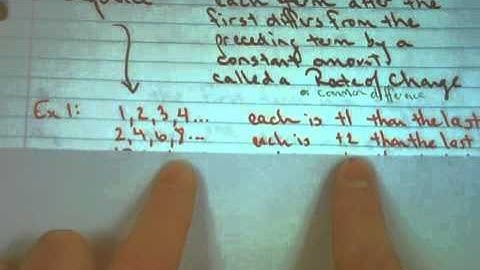 each term after the
first differs from the
preceding term by a
constant amount,
called a Rate of Change
or common difference
Ex 1: 1, 2, 3, 4... each is +1 than the last
2, 4, 6, 8... each is +2 than the last